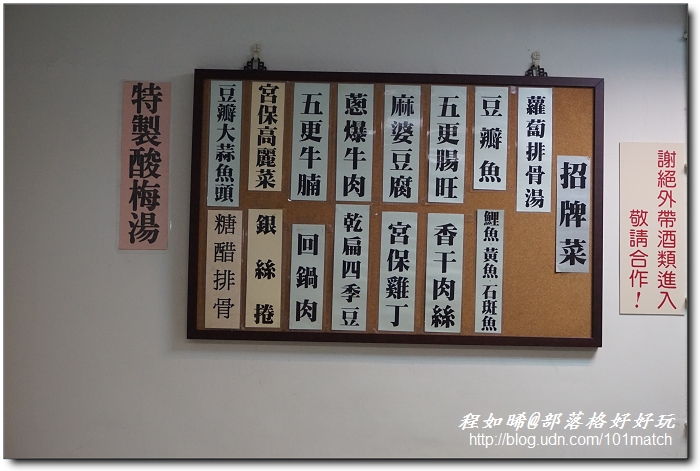 招牌菜
蘿蔔排骨湯
豆瓣魚
鯉魚 黃魚 石斑魚
五更腸旺
香干肉絲
麻婆豆腐
宮保雞丁
蔥爆牛肉
乾扁四季豆
五更牛腩
回鍋肉
宮保高麗菜
銀絲捲
豆瓣大蒜魚頭
糖醋排骨
特製酸梅湯
謝絕外帶酒類進入
敬請合作！
程如晞@部落格好好玩
http://blog.udn.com/101match